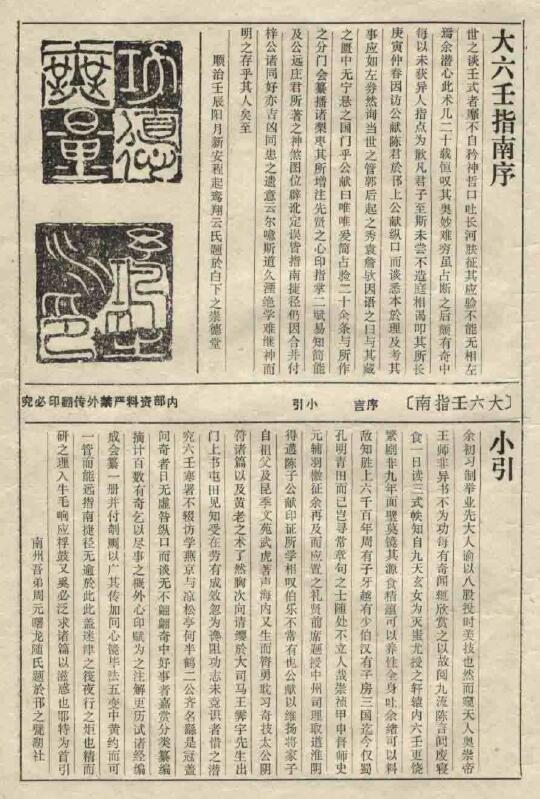 大六壬指南序
世之谈壬式者靡不自矜神哲口吐长河朕征其应验不能无相左
焉余潜心此术几二十载恒叹其奥妙难穷虽占断之后颇有奇中
每以未获异人指点为歉凡君子至斯未尝不造庭相谒叩其所长
庚寅仲春因访公献陈君於邗上公献纵口而谈悉本於理及考其
事应如左券然询当世之管郭后起之秀袁詹欤因语之曰与其藏
之匮中无宁悬之国门乎公献曰唯唯爰简占验二十余条与所作
之分门会纂播诸梨枣其所增注先贤之心印指掌二赋易知简能
及公远庄君所著之神煞图位辟讹定误皆指南捷径仍因合并付
梓公诸同好亦吉凶同患之遗意云尔噫斯道久湮绝学难继神而
明之存乎其人矣至
顺治壬辰阳月新安程起鸾翔云氏题於白下之崇德堂
功德無量
〔大六壬指南〕 序言 小引 内部资料严禁外传翻印必究
小引
余初习制举业先大人谕以八股投时美技也然而窥天人奥崇帝
王师非异书不为功每有奇闻辄欣赏之以故阅九流陈言间废寝
食一日读三式帙知自九天玄女为灭蚩尤授之轩辕内六壬更饶
繁剧非九年面壁莫镜其源食精蕴可以养性全身吐余绪可以料
敌知胜上六千百年周有子牙越有少伯汉有子房三国迄今仅蜀
孔明青田而已岂寻常章句之士随处不立人哉崇祯甲申督师史
元辅羽檄征余再及而应置之礼贤前席题授中州司理取道淮阴
得遘陈子公献印证所学相叹伯乐不常有也公献以维扬将家子
自祖父及昆季文苑武虎著声海内又生而膂勇耽习奇技太公阴
符诸篇以及黄老之术了然胸次向请缨於大司马王霁宇先生出
门上书屯田见知受在劳有成效忽为谗阻功志未竞识者惜之潜
究六壬寒署不辍访学燕京与凉松亭何半鹤二公齐名繇是冠盖
问奇者日无虚晷纵口而谈无不翩翩奇中好事者嘉赏分类纂编
摘计百数有奇乞以尽事之概外心印赋为之注解更历试诸经编
成会纂一册并付剞劂以广其传加同心镜毕法五变中黄约而可
一管而能远指南捷径无逾於此此盖迷津之筏夜行之炬也精而
研之理入牛毛响应桴鼓又奚必泛求诸篇以滋惑也耶特为首引
南州吾弟周元曙龙随氏题於邗之甓湖社